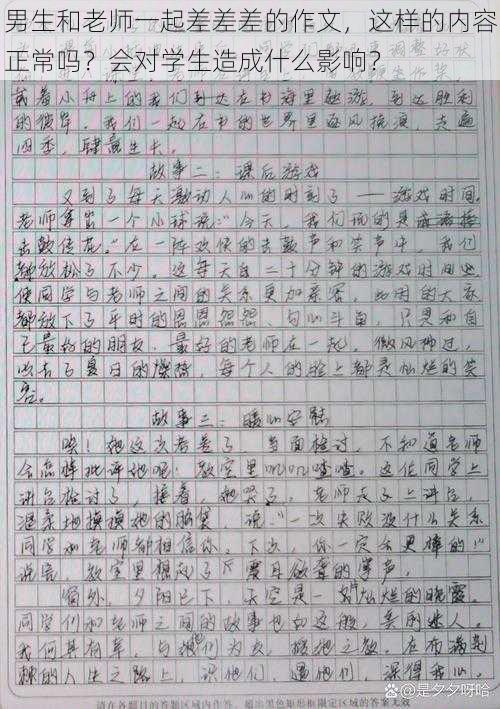 男生和老师一起差差差的作文，这样的内容
正常吗？会对学生造成什么影响？
或着小舟上的我们到达在书海里遨游，到达胜利
的彼岸。我们一起在书的世界里逐风挽浪，走遍
四季，肆意生长。
故事二：课后游戏
又到了每天激动人心的时刻了——游戏时间。
老师拿出一个小球说："今天，我们玩的是
击鼓传花。"在一阵欢快的击鼓声和笑声中，我们
都放松了不少。这每天自二十分钟的游戏时间也
使同学与老师之间的关系更加亲密，此间的大家
都放下了平时的恩恩怨怨、勾心斗角，只是和自
己最好的朋友，最好的老师在一起。微风拂过，
吹去了夏日的燥热，每个人的脸上都是灿烂的笑
容。
故事三：暖心安慰
唉！她这次考差了，当面检讨，不知道老师
会怎样批评她呢！教室里叽叽喳喳。这位同学上
讲台检讨了，接着，她哭了，老师走上讲台，
温柔地摸摸她的脑袋，说："一次失败没什么关系
同学和老师都相信你。下次，你一定会更棒的"
说完，教室里响起了震耳欲聋的掌声。
窗外，夕阳已下，天空是一如灿烂的晚霞，
同学们和老师之间的故事也如这般，美丽迷人。
我何其有幸，与他们为友，在布满荆
棘的人生之路上，识他们，遇他们，深得我心。
请在各题目的答题区域内作答，超出黑色矩形框限定区域的答案无效
@是夕夕呀哈